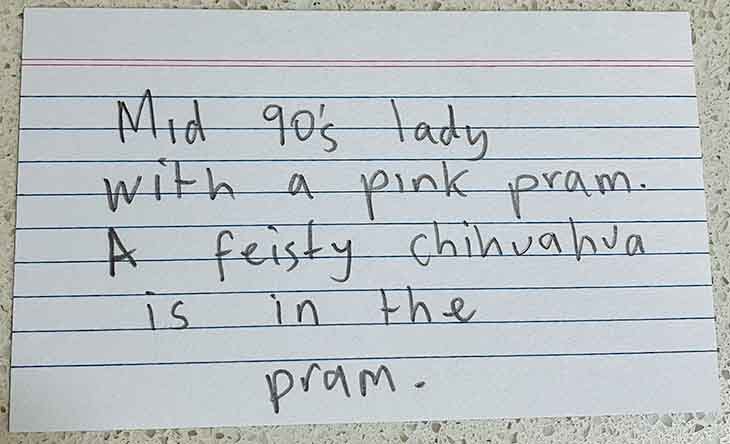 Mid 90's lady
with a pink pram.
A feisty chihuahua
is in the
pram.